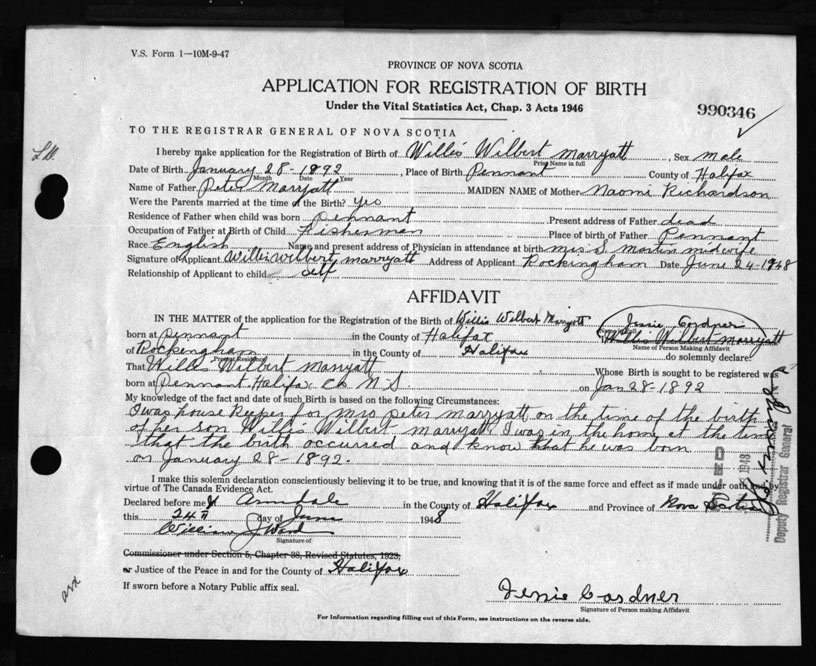 V.S. Form 1—10M-9-47
PROVINCE OF NOVA SCOTIA
APPLICATION FOR REGISTRATION OF BIRTH
Under the Vital Statistics Act, Chap. 3 Acts 1946
990346
TO THE REGISTRAR GENERAL OF NOVA SCOTIA
I hereby make application for the Registration of Birth of Willis Wilbert Marryatt, Sex male
Print Name in full
Date of Birth January 28-1892, Place of Birth Pennant County of Halifax
Month Date Year
Name of Father Peter Marryatt MAIDEN NAME of Mother Naomi Richardson
Were the Parents married at the time of the Birth? yes
Residence of Father when child was born Pennant Present address of Father dead
Occupation of Father at Birth of Child Fisherman Place of birth of Father Pennant
Race English Name and present address of Physician in attendance at birth Mrs S. Martin midwife
Signature of Applicant Willis Wilbert Marryatt Address of Applicant Rockingham Date June 24-1948
Relationship of Applicant to child Self
AFFIDAVIT
IN THE MATTER of the application for the Registration of the Birth of Willis Wilbert Marryatt Jessie Gardner
born at Pennant in the County of Halifax Willis Wilbert Marryatt
Name of Person Making Affidavit
of Rockingham in the County of Halifax do solemnly declare:
That Willis Wilbert Marryatt Whose Birth is sought to be registered was
born at Pennant Halifax Co. N.S. on Jan 28-1892
My knowledge of the fact and date of such Birth is based on the following Circumstances:
I was house Keeper for Mrs Peter Marryatt on the time of the birth
of her son Willis Wilbert Marryatt I was in the home at the time
that the birth occurred and know that he was born
on January 28-1892.
I make this solemn declaration conscientiously believing it to be true, and knowing that it is of the same force and effect as if made under oath and by
virtue of The Canada Evidence Act.
Declared before me at Armdale in the County of Halifax and Province of Nova Scotia
this 24th day of June 1948
William J Ward
Signature of
Commissioner under Section 5, Chapter 88, Revised Statutes, 1923,
or Justice of the Peace in and for the County of Halifax
If sworn before a Notary Public affix seal.
Jessie Gardner
Signature of Person making Affidavit
For Information regarding filling out of this Form, see instructions on the reverse side.
1948
Deputy Registrar General